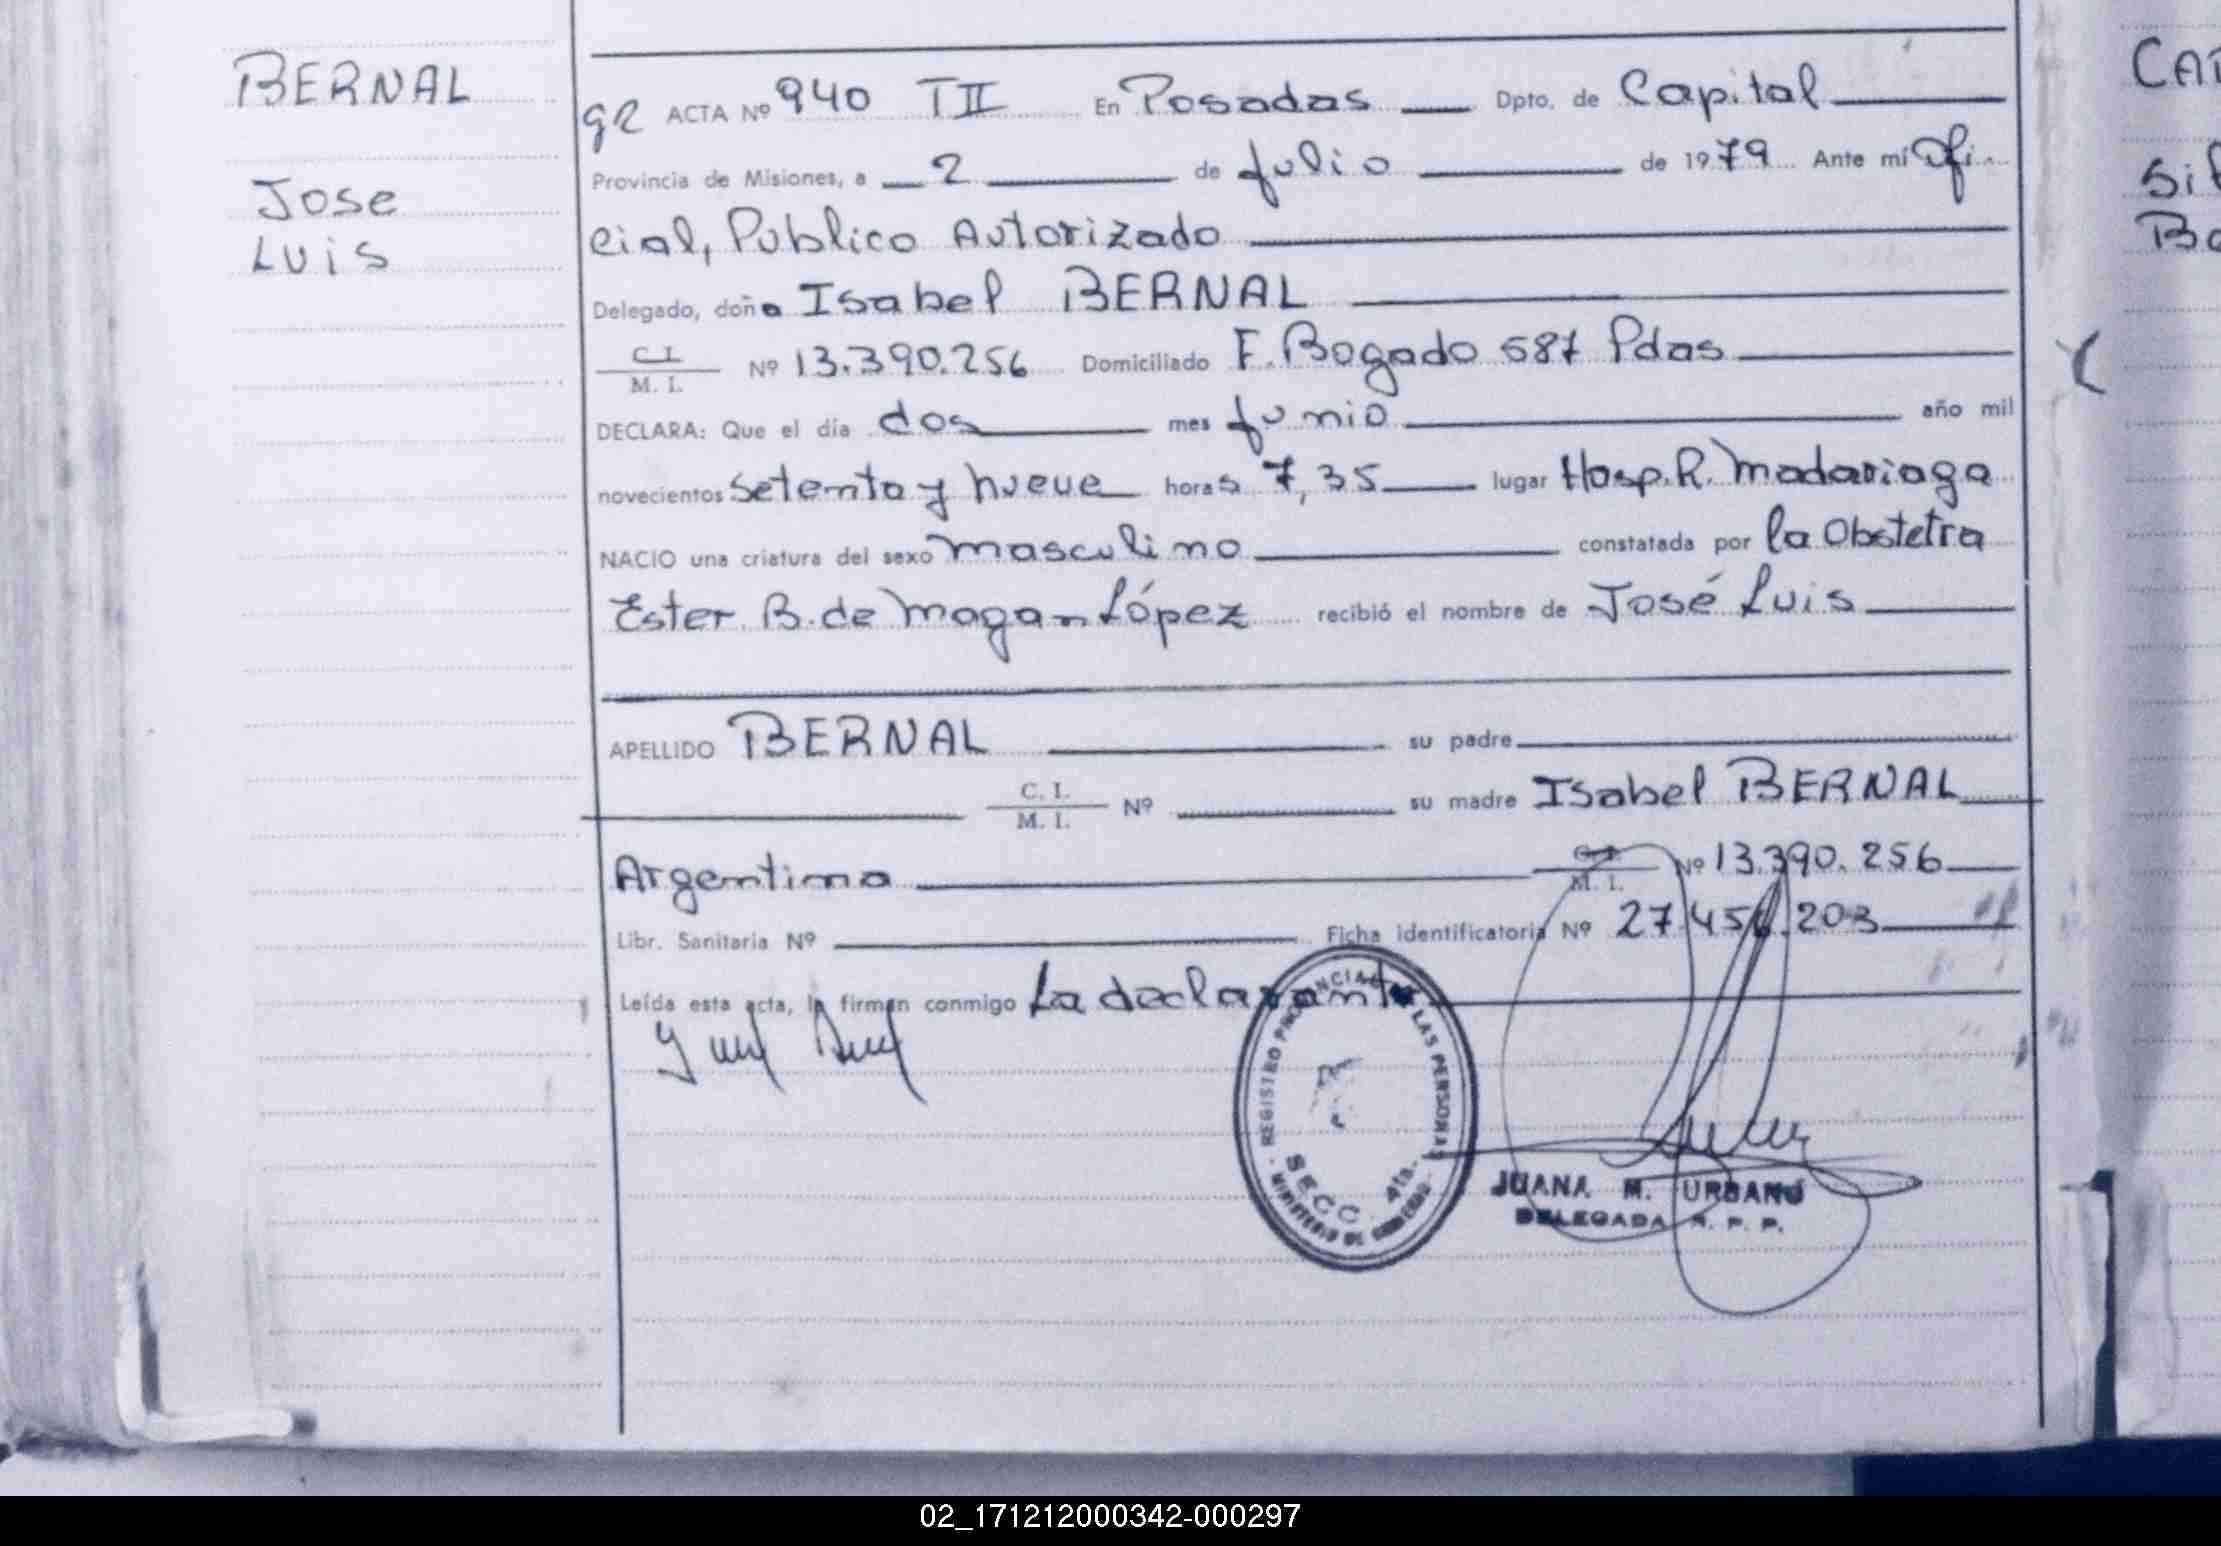 BERNAL
Jose
Luis
ACTA Nº 940 TII En Posadas Dpto. de Capital
Provincia de Misiones, a 2 de julio de 1979 Ante mí Ofi
cial, Publico Autorizado
Delegado, doña Isabel BERNAL
C I
M. I. Nº 13.390.256 Domiciliado F. Bogado 587 Pdas
DECLARA: Que el día dos mes junio año mil
novecientos setenta y nueve horas 7,35 lugar Hosp. R. Madariaga
NACIO una criatura del sexo masculino constatada por la Obstetra
Ester B. de Magan López recibió el nombre de José Luis
APELLIDO BERNAL su padre
C. I.
M. I. Nº su madre Isabel BERNAL
Argentina C. I.
M. I. Nº 13.390.256
Libr. Sanitaria Nº Ficha identificatoria Nº 27.456.203
Leída esta acta, la firman conmigo La declarante
REGISTRO PROVINCIAL DE LAS PERSONAS
SECC. 4ta.
MINISTERIO DE GOBIERNO
JUANA M. URBANO
DELEGADA R. P. P.
CAB
Sil
Ba
02_171212000342-000297